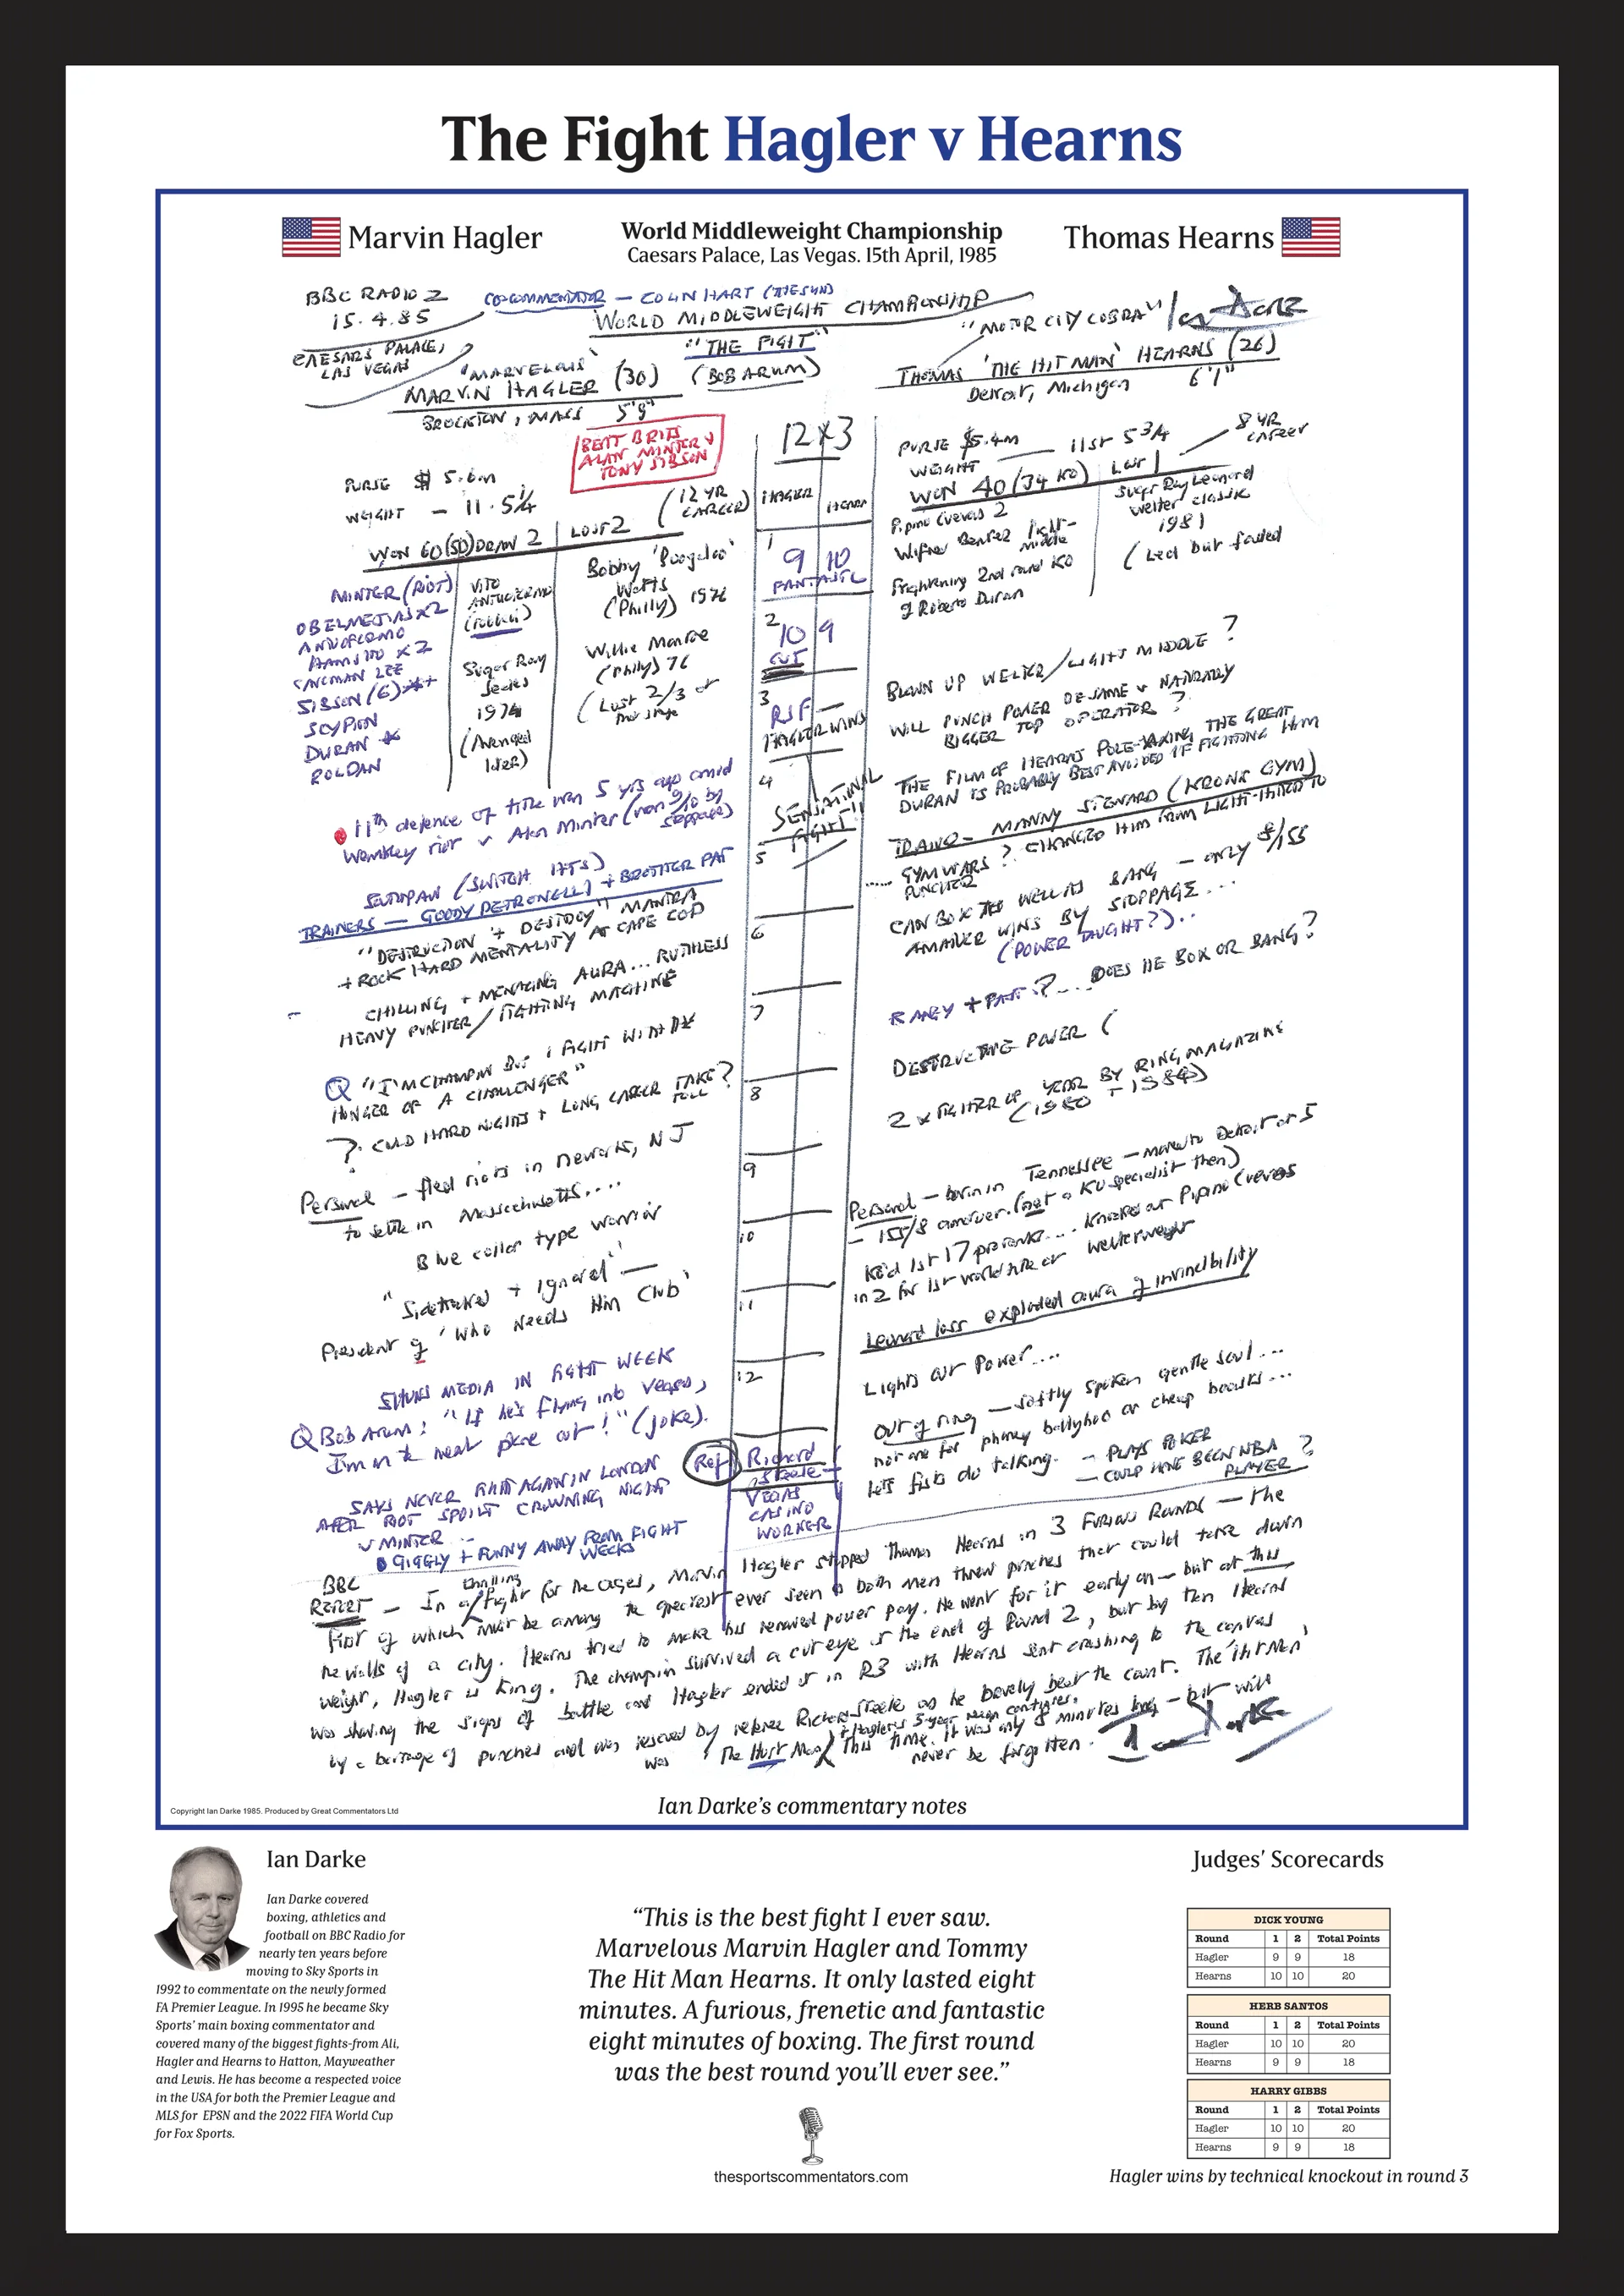 The Fight Hagler v Hearns
Marvin Hagler
World Middleweight Championship
Caesars Palace, Las Vegas. 15th April, 1985
Thomas Hearns
BBC RADIO 2
15.4.85
CAESARS PALACE,
LAS VEGAS
CO-COMMENTATOR — COLIN HART (THE SUN)
WORLD MIDDLEWEIGHT CHAMPIONSHIP
"THE FIGHT"
(BOB ARUM)
"MOTOR CITY COBRA"
Ian Darke
'MARVELOUS'
MARVIN HAGLER (30)
BROCKTON, MASS 5'9"
THOMAS 'THE HITMAN' HEARNS (26)
Detroit, Michigan 6'1"
BEAT BRITS
ALAN MINTER &
TONY SIBSON
PURSE $ 5.6m
WEIGHT - 11.5¼
(12 YR
CAREER)
WON 60 (50) DRAW 2 LOST 2
MINTER (RIOT)
OBELMEJIAS x2
ANTUOFERMO
HAMSHO x2
CAVEMAN LEE
SIBSON (6)
SCYPION
DURAN
ROLDAN
VITO
ANTUOFERMO
(robbed)
Sugar Ray
Seales
1974
(Avenged
later)
Bobby 'Boogaloo'
Watts
(Philly) 1976
Willie Monroe
(Philly) 76
(Lost 2/3 at
that stage
12 x 3
HAGLER HEARNS
1
9 10
FANTASTIC
2
10 9
CUT
3
RSF —
HAGLER WINS
4
SENSATIONAL
FIGHT!!
5
6
7
8
9
10
11
12
Ref Richard
Steele —
VEGAS
CASINO
WORKER
PURSE $5.4m
WEIGHT — 11st 5 3/4
8 YR
CAREER
WON 40 (34 KO) Lost 1
Pipino Cuevas 2
Wilfred Benitez light-
middle
Frightening 2nd round KO
of Roberto Duran
Sugar Ray Leonard
Welter classic
1981
(Led but faded
BLOWN UP WELTER/LIGHT MIDDLE?
WILL PUNCH POWER BE SAME v NATURALLY
BIGGER TOP OPERATOR?
THE FILM OF HEARNS POLE-AXING THE GREAT
DURAN IS PROBABLY BEST AVOIDED IF FIGHTING HIM
TRAINER — MANNY STEWARD (KRONK GYM)
..... GYM WARS? CHANGED HIM FROM LIGHT-HITTER TO
PUNCHER
CAN BOX AS WELL AS BANG — ONLY 8/155
AMATEUR WINS BY STOPPAGE...
(POWER TAUGHT?)..
RANGY + FAST?.... DOES HE BOX OR BANG?
DESTRUCTIVE POWER (
2 x FIGHTER OF YEAR BY RING MAGAZINE
(1980 + 1984)
Personal — born in Tennessee — moved to Detroit at 5
— 155/8 amateur. (not a KO specialist then)
KO'd 1st 17 pro ranks... knocked out Pipino Cuevas
in 2 for 1st world title at welterweight
Leonard loss exploded aura of invincibility
Lights out Power....
Out of ring — softly spoken gentle soul....
not one for phoney ballyhoo or cheap boasts...
lets fists do talking. — PLAYS POKER
— COULD HAVE BEEN NBA PLAYER?
11th defence of title won 5 yrs ago amid
Wembley riot v Alan Minter (won 9/10 by
stoppages)
SOUTHPAW (SWITCH HITS)
TRAINERS — GOODY PETRONELLI + BROTHER PAT
"DESTRUCTION + DESTROY" MANTRA
+ ROCK HARD MENTALITY AT CAPE COD
CHILLING + MENACING AURA... RUTHLESS
HEAVY PUNCHER/FIGHTING MACHINE
Q "I'M CHAMPION BUT I FIGHT WITH THE
HUNGER OF A CHALLENGER"
? COULD HARD NIGHTS + LONG CAREER TAKE TOLL?
Personal — fled riots in Newark, NJ
to settle in Massachusetts....
Blue collar type warrior
"Sidetracked + Ignored" —
President of 'Who Needs Him Club'
SHUNS MEDIA IN FIGHT WEEK
Q Bob Arum: "If he's flying into Vegas,
I'm on the next plane out!" (joke).
SAYS NEVER FIGHT AGAIN IN LONDON
AFTER RIOT SPOILT CROWNING NIGHT
v MINTER —
GIGGLY + FUNNY AWAY FROM FIGHT
WEEKS
BBC
REPORT — In a thrilling fight for the ages, Marvin Hagler stopped Thomas Hearns in 3 FURIOUS ROUNDS — the
first of which must be among the greatest ever seen as both men threw punches that could take down
the walls of a city. Hearns tried to make his renowned power pay. He went for it early on — but at this
weight, Hagler is King. The champion survived a cut eye at the end of Round 2, but by then Hearns
was showing the signs of battle and Hagler ended it in R3 with Hearns sent crashing to the canvas
by a barrage of punches and was rescued by referee Richard Steele as he bravely beat the count. The 'Hit Man'
was 'The Hurt Man' this time. + Hagler's 5 year reign continues. It was only 8 minutes long — but will
never be forgotten.
Ian Darke
Copyright Ian Darke 1985. Produced by Great Commentators Ltd
Ian Darke's commentary notes
Ian Darke
Ian Darke covered
boxing, athletics and
football on BBC Radio for
nearly ten years before
moving to Sky Sports in
1992 to commentate on the newly formed
FA Premier League. In 1995 he became Sky
Sports' main boxing commentator and
covered many of the biggest fights-from Ali,
Hagler and Hearns to Hatton, Mayweather
and Lewis. He has become a respected voice
in the USA for both the Premier League and
MLS for EPSN and the 2022 FIFA World Cup
for Fox Sports.
"This is the best fight I ever saw.
Marvelous Marvin Hagler and Tommy
The Hit Man Hearns. It only lasted eight
minutes. A furious, frenetic and fantastic
eight minutes of boxing. The first round
was the best round you'll ever see."
thesportscommentators.com
Judges' Scorecards
DICK YOUNG
Round 1 2 Total Points
Hagler 9 9 18
Hearns 10 10 20
HERB SANTOS
Round 1 2 Total Points
Hagler 10 10 20
Hearns 9 9 18
HARRY GIBBS
Round 1 2 Total Points
Hagler 10 10 20
Hearns 9 9 18
Hagler wins by technical knockout in round 3